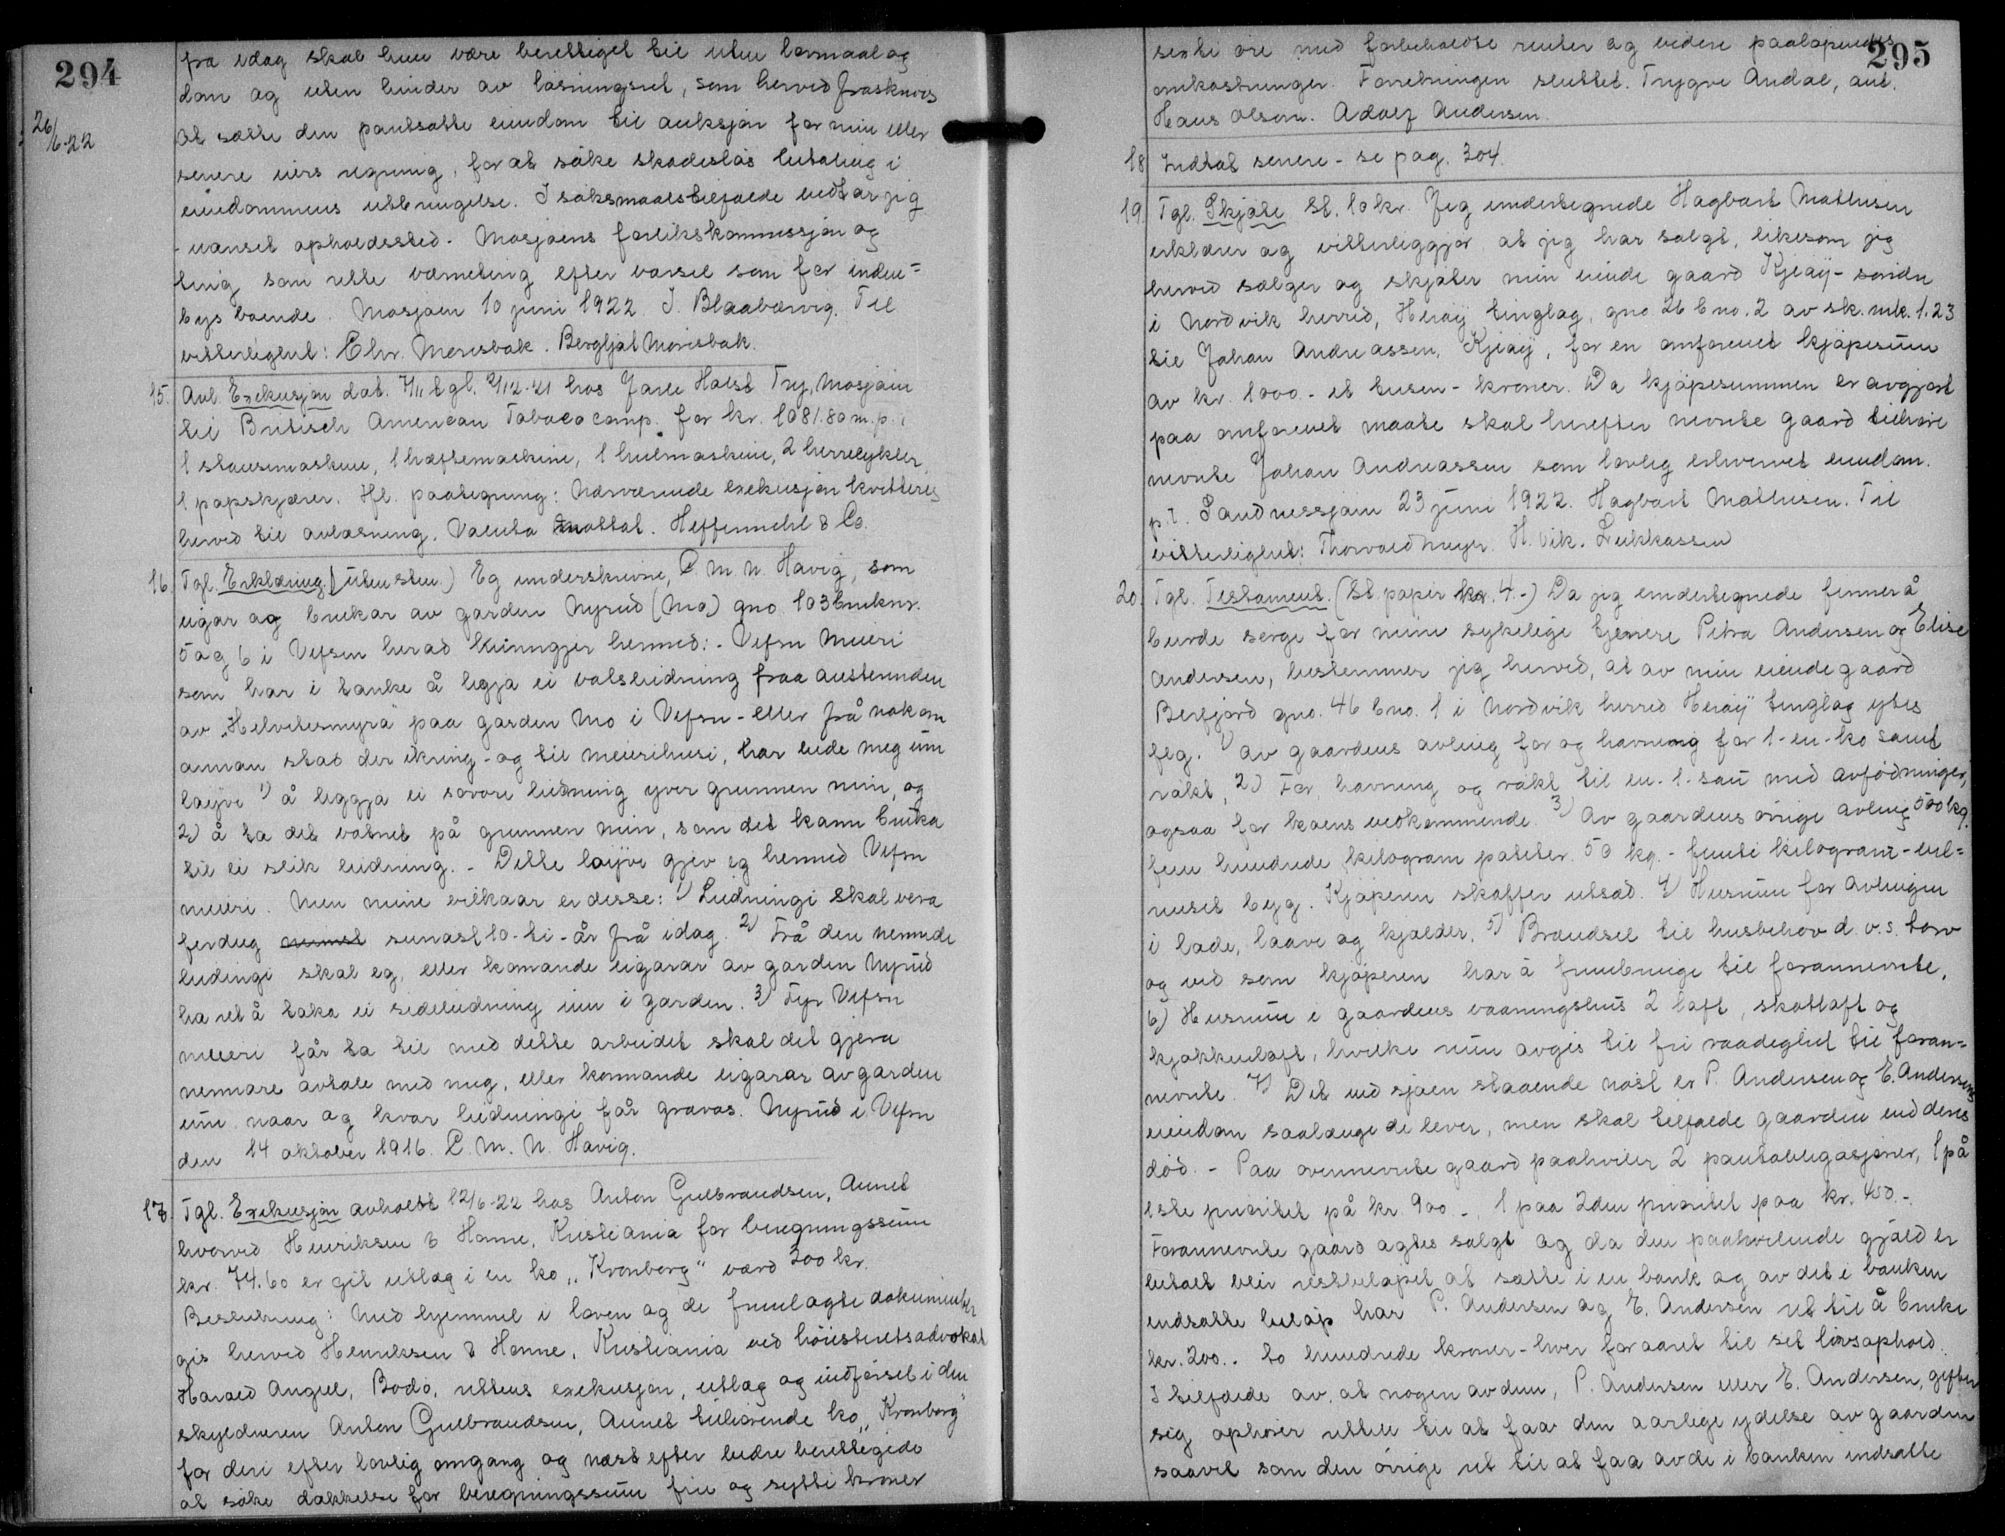 294
26/6-22
fra idag skal hun være berettiget til uten lovmaal og
dom og uten hinder av løsningsret, som herved fraskrives
at sætte den pantsatte eiendom til auksjon for min eller
senere eiers regning, for at søke skadesløs betaling i
eiendommens utbringelse. I søksmaalstilfælde vedtar jeg
- uanset opholdssted - Mosjøens forlikskommissjon og
ting som rette værneting efter varsel som for inden=
bys boende. Mosjøen 10 juni 1922 J. Blaabærvig. Til
vitterlighet: Chr. Moresbak. Bergljot Moresbak.
15. Avl. Exekusjon dat. 7/11 tgl. 2/12-21 hos Jarle Holst Try, Mosjøen
til Britisch American Tobaco comp. for kr. 1081.80 m. p. i
1 stansemaskine, 1 hæftemaskine, 1 hulmaskine, 2 herrecykler,
1 papskjærer. Hf. paategning: Nærværende exekusjon kvitteres
herved til avlæsning. Valuta mottat. Heffermehl & Co.
16. Tgl. Erklæring. (Uten stem.) Eg underskrivne, P. M. N. Havig, som
eigar og brukar av garden Nyrud (Mo) gno. 103 bruksnr.
5 og 6 i Vefsn herad kunngjer hermed: - Vefsn Meieri
som har i tanke å legja ei vatsleidning fraa austenden
av "Helvetesmyra" paa garden Mo i Vefsn - eller frå nokon
annan stad der ikring - og til meierihusi, har bede meg um
løyve 1) å leggja ei sovore leidning yver grunnen min, og
2) å ta det vatnet på grunnen min, som det kann bruka
til ei slik leidning. - Dette løyve gjev eg hermed Vefsn
meieri. Men mine vilkaar er disse: 1) Leidningi skal vera
ferdug seinast 10-ti-år frå idag. 2) Frå den nemnde
leidingi skal eg, eller komande eigarar av garden Nyrud
ha ret å taka ei sideleidning inn i garden. 3) Fyr Vefsn
meieri får ta til med dette arbeidet skal det gjera
nermare avtale med meg, eller komande eigarar av garden
um naar og kvar leidningi får gravas. Nyrud i Vefsn
den 14 oktober 1916. P. M. N. Havig.
17. Tgl. Exekusjon avholdt 12/6-22 hos Anton Gulbrandsen, Aunet
hvorved Henriksen & Hanne, Kristiania for beregningssum
kr. 74.60 er git utlæg i en ko "Kronborg" værd 300 kr.
Beslutning: Med hjemmel i loven og de fremlagte dokumenter
gis herved Henriksen & Hanne, Kristiania ved høiesteretsadvokat
Harald Angell, Bodø, rettens exekusjon, utlæg og indførsel i den
skyldneren Anton Gulbrandsen, Aunet tilhørende ko "Kronborg"
for deri efter lovlig omgang og næst efter bedre berettigede
at søke dækkelse for beregningssum fire og sytti kroner
295
seksti øre med forbeholdte renter og videre paaløpendes
omkostninger. Forretningen sluttet. Trygve Andal, aut.
Hans Olsen. Adolf Andersen.
18 Indtat senere - se pag. 304.
19. Tgl. Skjøte St. 10 kr. Jeg undertegnede Hagbart Mathisen
erklærer og vitterliggjør, at jeg har solgt, likesom jeg
herved sælger og skjøter min eiende gaard Kjeøy-søndre
i Nordvik herred, Herøy tinglag, gno. 26 bno. 2 av sk. mk. 1.23
til Johan Andreassen, Kjeøy, for en omforenet kjøpesum
av kr. 1000 - et tusen - kroner. Da kjøpesummen er avgjort
paa omforenet maate skal herefter nevnte gaard tilhøre
nevnte Johan Andreassen som lovlig erhvervet eiendom.
p. t. Sandnessjøen 23 juni 1922. Hagbart Mathisen. Til
vitterlighet: Thorvald Meyer. H. Vik. Lukkassen
20. Tgl. Testament. (St. papir kr. 4.-) Da jeg undertegnede finner å
burde sørge for mine sykelige tjenere Petra Andersen og Elise
Andersen, bestemmer jeg herved, at av min eiende gaard
Breifjord gno. 46 bno. 1 i Nordvik herred Herøy tinglag ydes
feg. 1) av gaardens avling for og havning for 1-en-ko samt
røkt, 2) For, havning og røkt til en-1-sau med avfødninger,
ogsaa for koens vedkommende. 3) Av gaardens øvrige avling 500 kg.
fem hundrede kilogram poteter. 50 kg. - femti kilogram - uil=
renset byg. Kjøperen skaffer utsæd. 4) Husrum for avlingen
i lade, laave og kjælder. 5) Brændsel til husbehov d. v. s. torv
og ved som kjøperen har å frembringe til forannevnte.
6) Husrum i gaardens vaaningshus 2 loft, skotloft og
kjøkkenloft, hvilke rum avgis til fri raadighet til foran=
nevnte. 7) Det ved sjøen staaende nøst er P. Andersen og E. Andersens
eiendom saalænge de lever, men skal tilfalde gaarden ved deres
død. - Paa ovennevnte gaard paahviler 2 pantobligasjoner, 1 på
1ste prioritet på kr. 900. -, 1 paa 2den prioritet paa kr. 450.-
Forannevnte gaard agtes solgt og da den paahvilende gjæld er
betalt blir restbeløpet at sætte i en bank og av det i banken
indsatte beløp har P. Andersen og E. Andersen ret til å bruke
kr. 200.. to hundrede kroner - hver for aaret til sit livsophold.
I tilfælde av, at nogen av dem, P. Andersen eller E. Andersen, gifter
sig ophører retten til at faa den aarlige ydelse av gaarden
saavel som den øvrige ret til at faa av de i banken indsatte